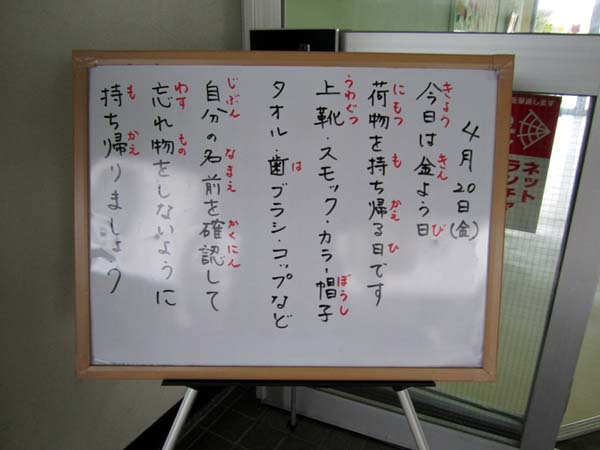 4月20日(金)
きょう きん び
今日は金よう日
にもつ も かえ ひ
荷物を持ち帰る日です
うわぐつ ぼうし
上靴・スモック・カラー帽子
は
タオル・歯ブラシ・コップなど
じぶん なまえ かくにん
自分の名前を確認して
わす もの
忘れ物をしないように
も かえ
持ち帰りましょう
ネット